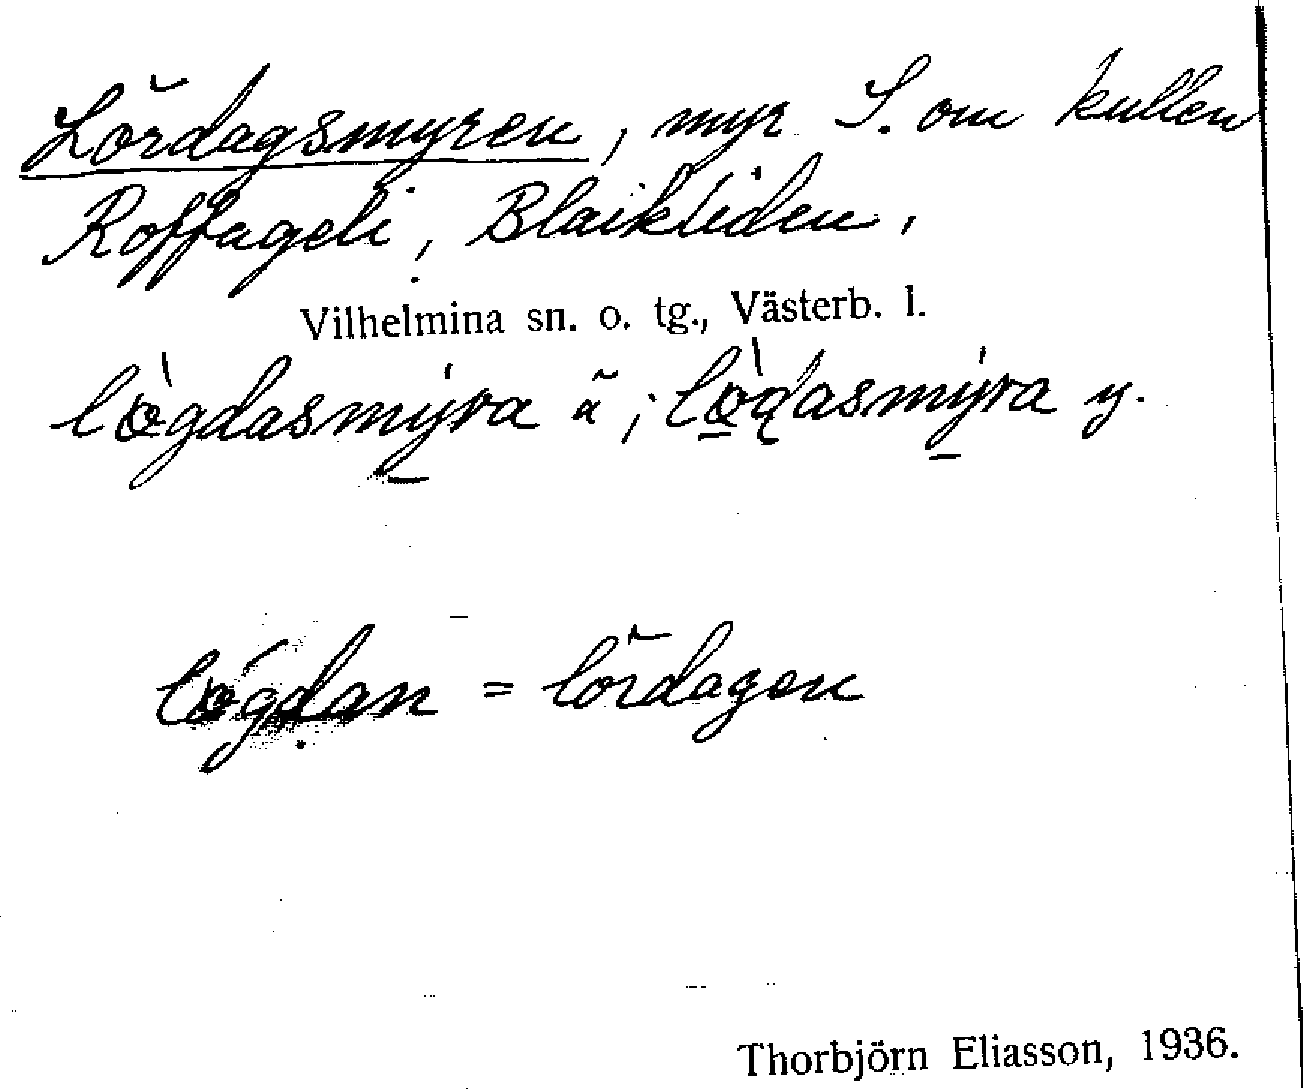 Lördagsmyren, myr S. om kullen
Roffageli, Blaikliden,
Vilhelmina sn. o. tg., Västerb. l.
lø̀gdasmýra ä; lø̀ḍasmýra y.
løgdan = lördagen
Thorbjörn Eliasson, 1936.